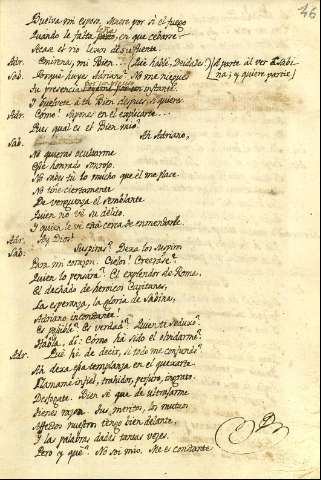 46
Buelva mi esposo, Muera por si el fuego
Quando le falta en que cebarse
Secar el rio lexos de su fuente.
Adr. Emirena, mi Bien...! (Aqui havéis, Deidades!) (Aparte al ver a Sabina; y quiere partir)
Sab. Porque huyes Adriano? No me niegues
Su presencia instante.
Y buelvete a tu Bien despues si quieres
Adr. Como! Supones en el explicarte...
Pues qual es el Bien mio?
Sab. Eh Adriano,
No quieras ocultarme
Que honrado
No sabes tu lo mucho que el me place.
No tiñe ciertamente
De verguenza el semblante
Quien no vé su delito.
Y quien le vé está cerca de enmendarle.
Adr. Ay Dios!
Sab. Suspiras? Dexa los suspiros
Para mi corazon. Cielos! Creeisle?
Quien lo pensara? El explendor de Roma,
El dechado de heroicos Capitanes,
La esperanza, la gloria de Sabina,
Adriano inconstante!
Es posible? Es verdad? Quien te seduxo?
Habla, di: Como há sido el olvidarme?
Adr. Qué hé de decir, si todo me confunde?
Ah dexa esa templanza en el quexarte.
Llamame infiel, trahidor, perjuro, ingrato.
Desfogate. Bien sé que de ultrajarme
tienes razon. Tus meritos, los mutuos
Afectos nuestros tengo bien delante,
Y las palabras dadas tantas veces.
Pero y que? No soi mio. No es constante